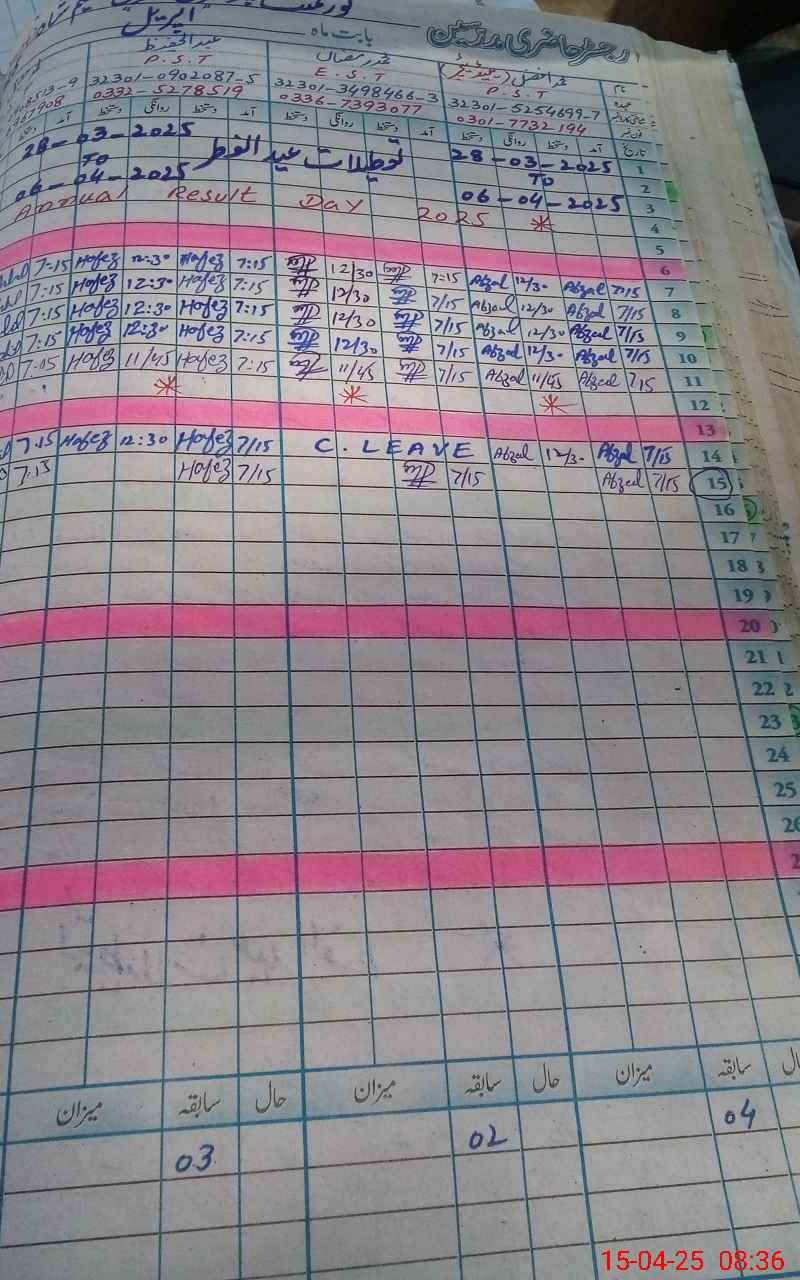 رجسٹر حاضری مدرسین بابت ماہ اپریل
نام محمد افضل محمد رمضان عبدالحفیظ
عہدہ P.S.T E.S.T P.S.T
32301-5254699-7 32301-3498466-3 32301-0902087-5
فون نمبر 0301-7732194 0336-7393077 0332-5278519
تاریخ آمد دستخط روانگی دستخط آمد دستخط روانگی دستخط آمد دستخط روانگی دستخط آمد دستخط
1 28-03-2025 تعطیلات عید الفطر 28-03-2025
2 TO TO
3 06-04-2025 06-04-2025
4 Annual Result Day 2025 *
5
6
7 7:15 Afzal 12/30 Afzal 7:15 12/30 7:15 Hafez 12:30 Hafez 7:15
8 7/15 Afzal 12/30 Afzal 7/15 12/30 7:15 Hafez 12:30 Hafez 7:15
9 7/15 Afzal 12/30 Afzal 7/15 12/30 7:15 Hafez 12:30 Hafez 7:15
10 7/15 Afzal 12/30 Afzal 7/15 12/30 7:15 Hafez 12:30 Hafez 7:15
11 7/15 Afzal 11/45 Afzal 7/15 11/45 7:15 Hafez 11/45 Hafez 7:15
12 * * *
13
14 7/15 Afzal 12/30 Afzal C. LEAVE 7/15 Hafez 12:30 Hafez 7:15
15 7/15 Afzal 7/15 7/15 Hafez 7:15
16
17
18
19
20
21
22
23
24
25
26
حال سابقہ میزان حال سابقہ میزان حال سابقہ میزان
04 02 03
15-04-25 08:36